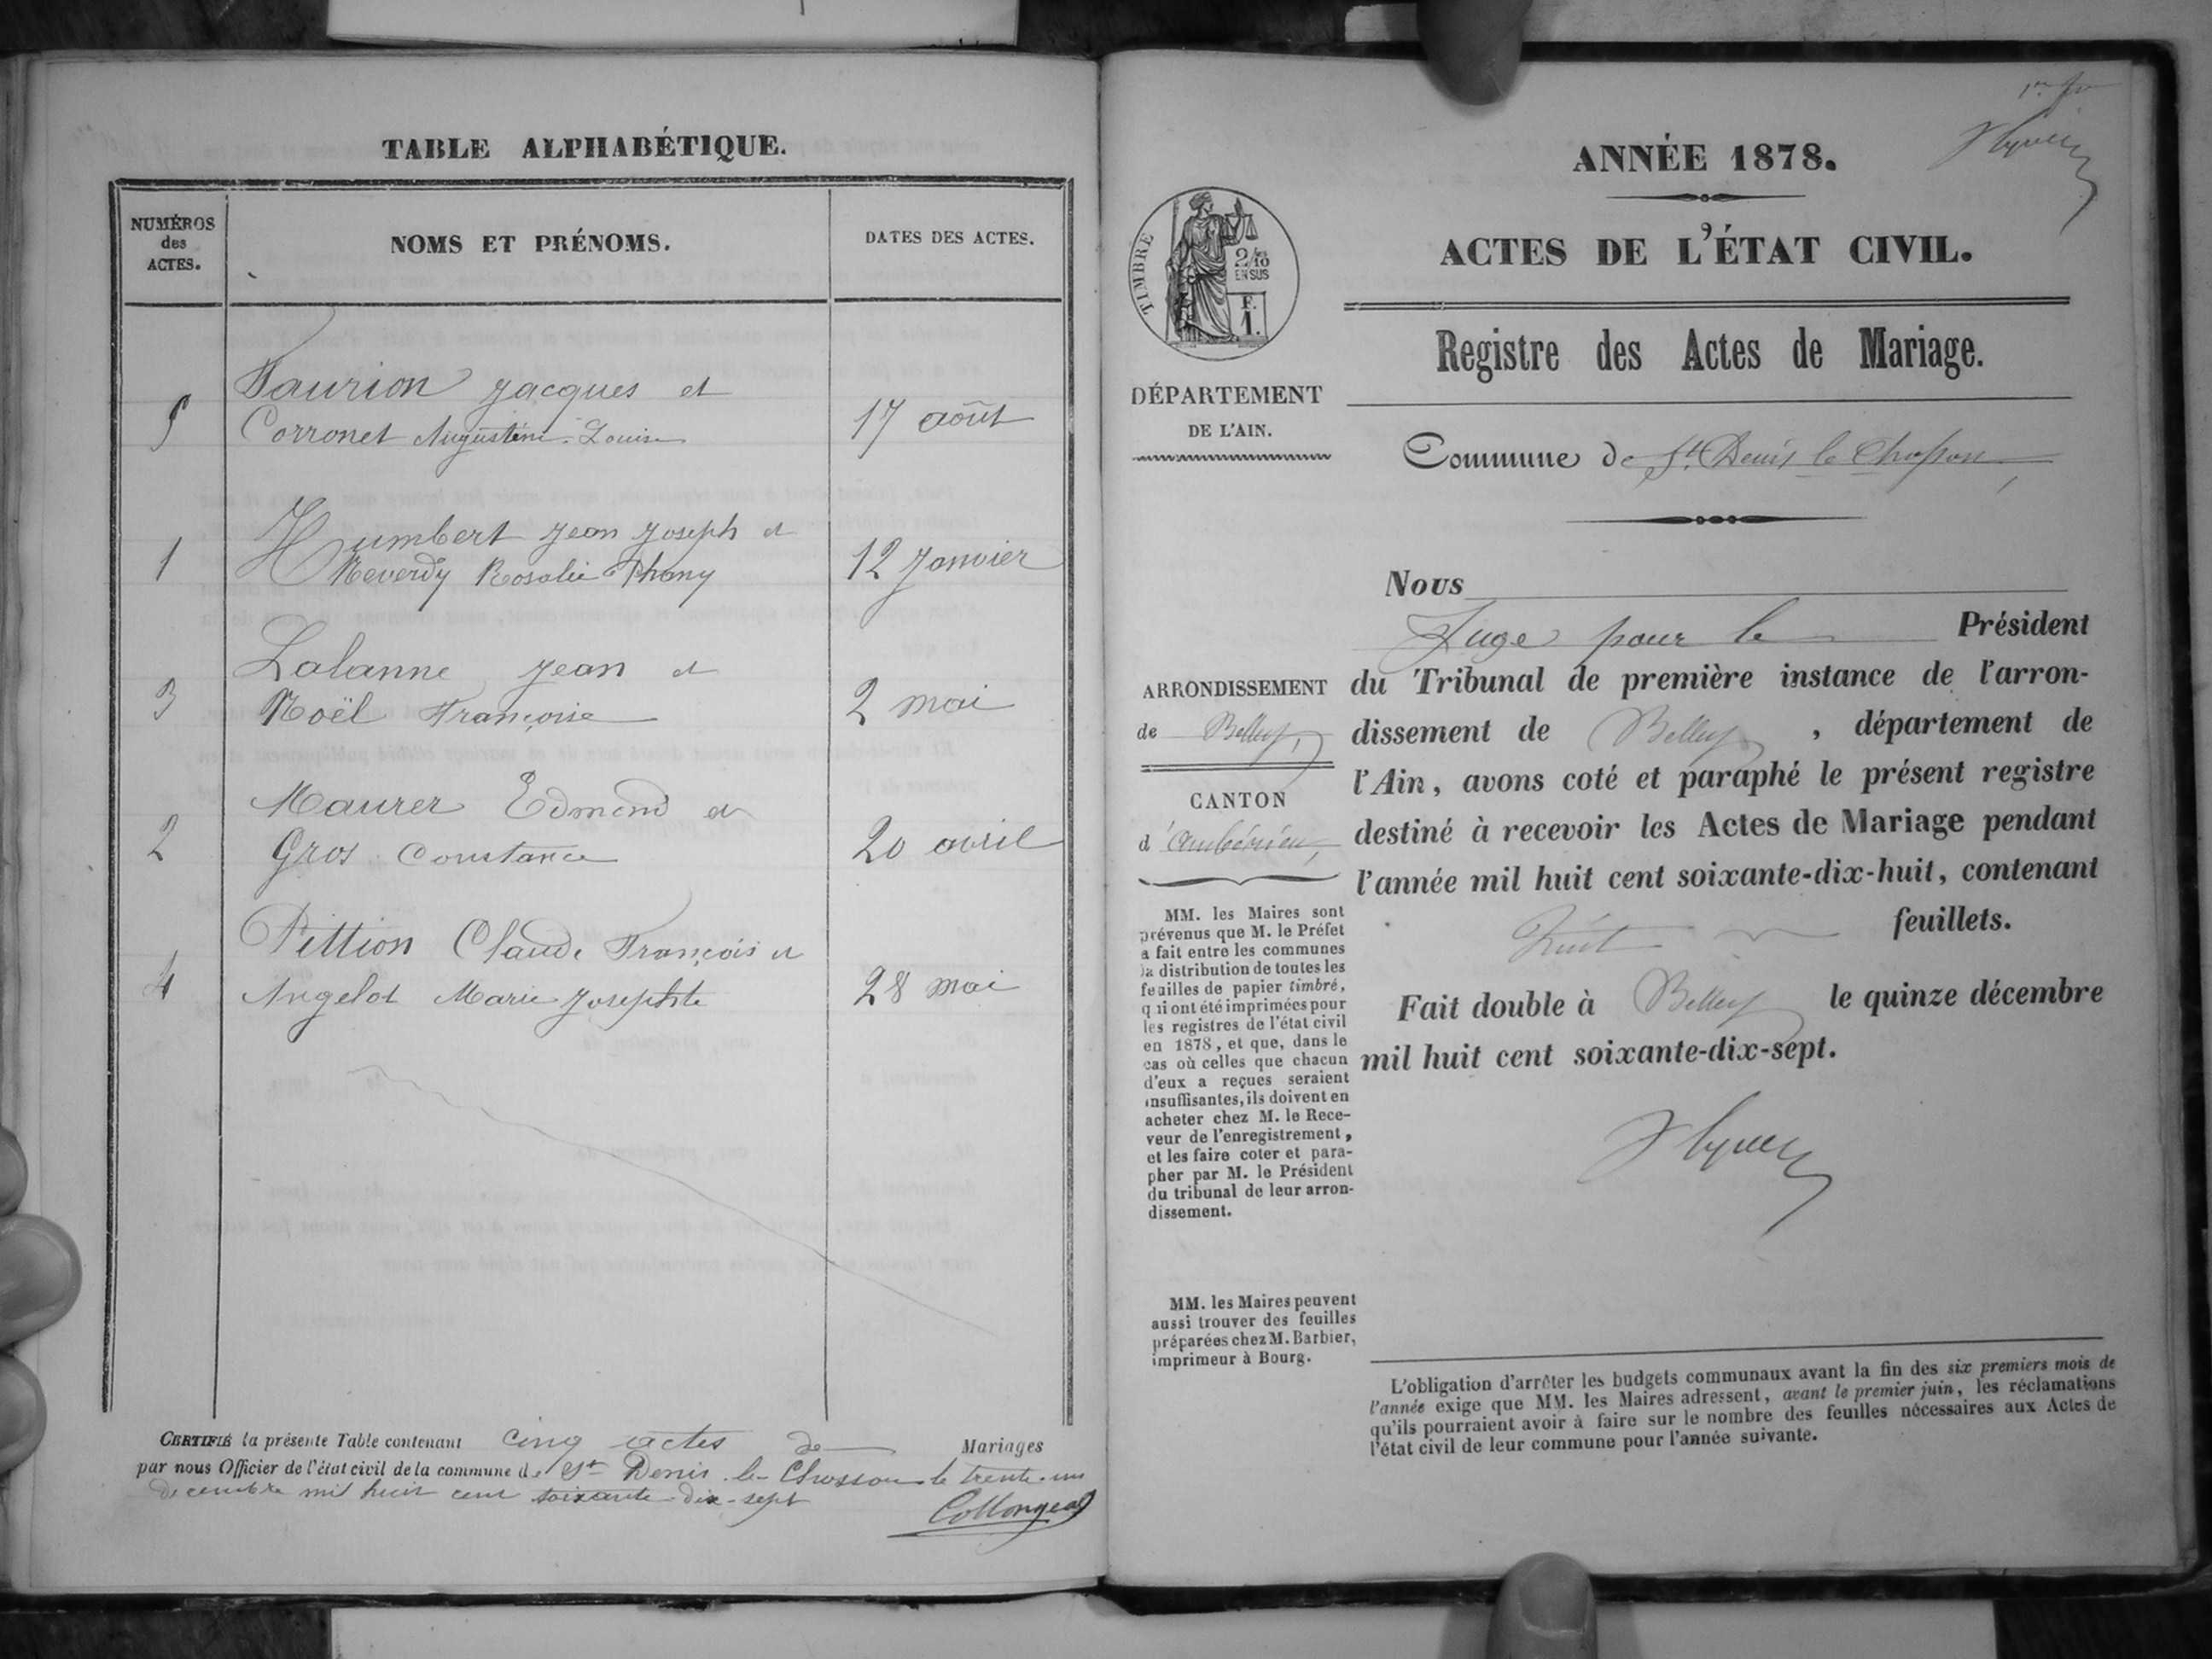 TABLE ALPHABÉTIQUE.
NUMÉROS
des
ACTES.
NOMS ET PRÉNOMS.
DATES DES ACTES.
5
Faurion Jacques et
Corronet Augustine-Louise
17 août
1
Humbert Jean Joseph et
Reverdy Rosalie Phany
12 Janvier
3
Lalanne Jean et
Noël Françoise
2 mai
2
Maurer Edmond et
Gros Constance
20 avril
4
Pittion Claude François et
Angelot Marie Josephte
28 mai
CERTIFIÉ la présente Table contenant cinq actes de Mariages
par nous Officier de l'état civil de la commune de St Denis-le-Chosson le trente-un
décembre mil huit cent soixante-dix-sept
1er
ANNÉE 1878.
TIMBRE
2/10
EN SUS
F.
1.
ACTES DE L'ÉTAT CIVIL.
Registre des Actes de Mariage.
DÉPARTEMENT
DE L'AIN.
Commune de St. Denis le Chosson,
Nous
Juge pour le Président
du Tribunal de première instance de l'arron-
dissement de Belley, département de
l'Ain, avons coté et paraphé le présent registre
destiné à recevoir les Actes de Mariage pendant
l'année mil huit cent soixante-dix-huit, contenant
huit feuillets.
Fait double à Belley le quinze décembre
mil huit cent soixante-dix-sept.
ARRONDISSEMENT
de Belley,
CANTON
d'Ambérieu,
MM. les Maires sont
prévenus que M. le Préfet
a fait entre les communes
la distribution de toutes les
feuilles de papier timbré,
qui ont été imprimées pour
les registres de l'état civil
en 1878, et que, dans le
cas où celles que chacun
d'eux a reçues seraient
insuffisantes, ils doivent en
acheter chez M. le Rece-
veur de l'enregistrement,
et les faire coter et para-
pher par M. le Président
du tribunal de leur arron-
dissement.
MM. les Maires peuvent
aussi trouver des feuilles
préparées chez M. Barbier,
imprimeur à Bourg.
L'obligation d'arrêter les budgets communaux avant la fin des six premiers mois de
l'année exige que MM. les Maires adressent, avant le premier juin, les réclamations
qu'ils pourraient avoir à faire sur le nombre des feuilles nécessaires aux Actes de
l'état civil de leur commune pour l'année suivante.